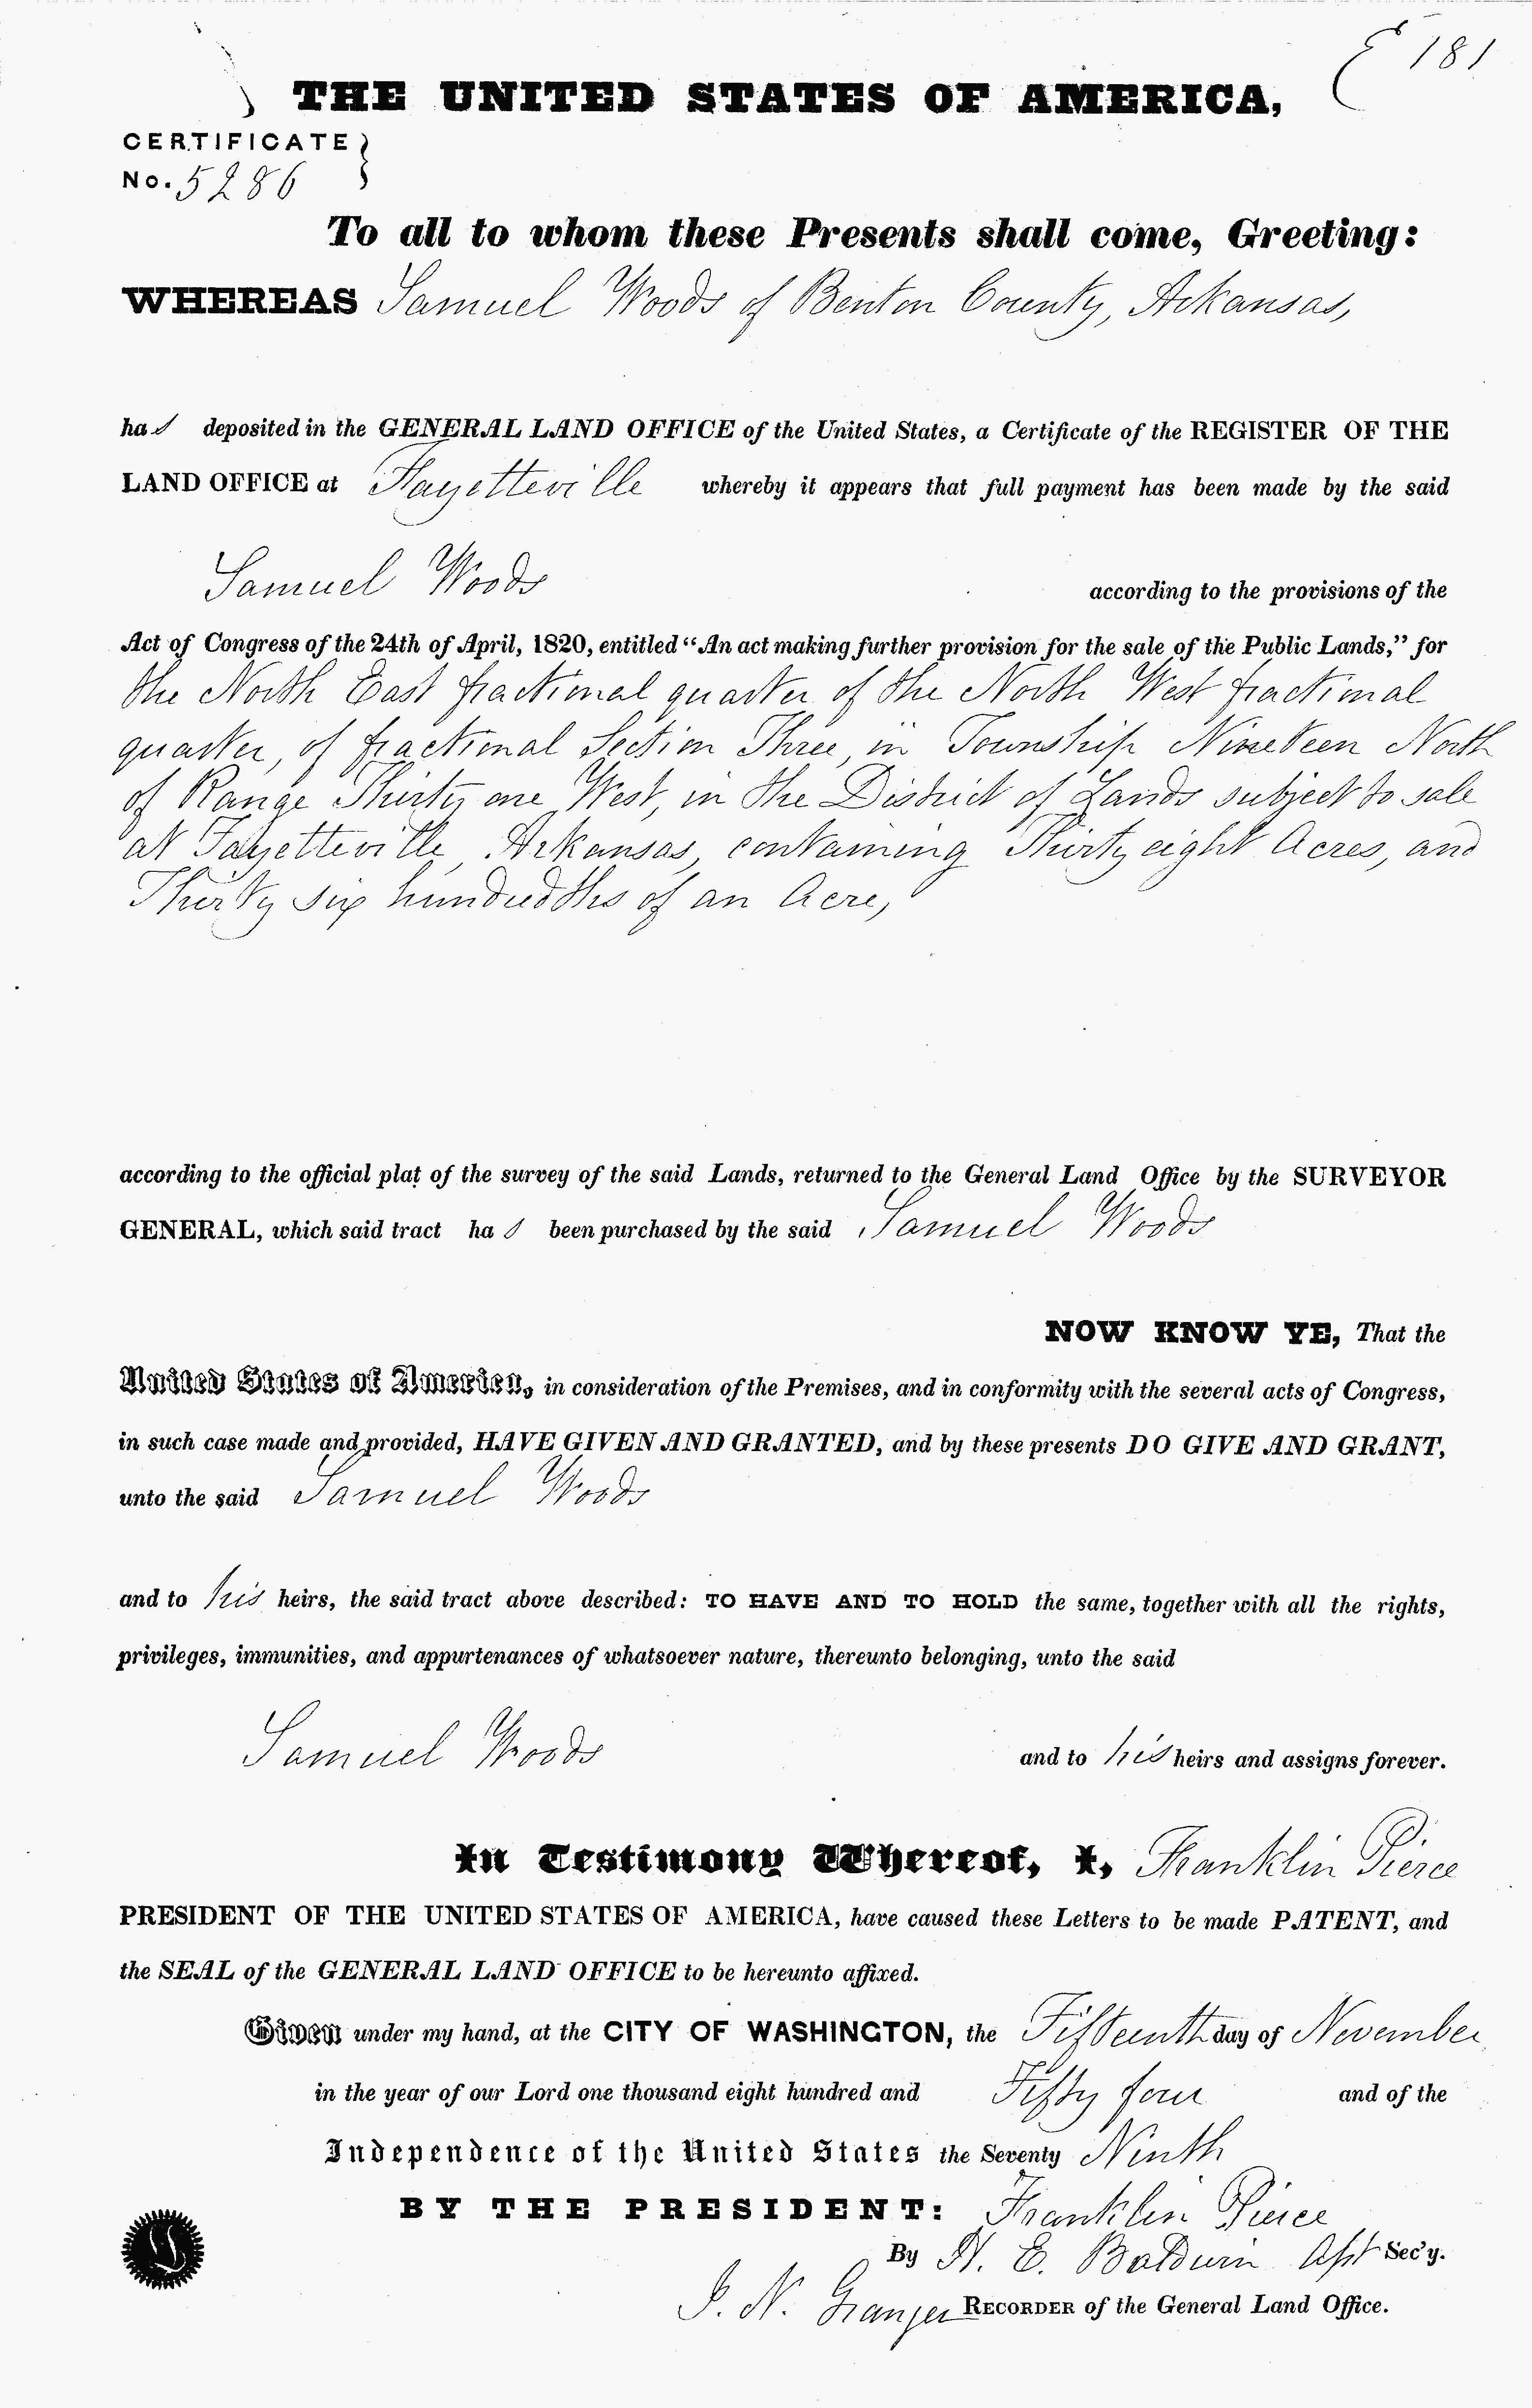 181
THE UNITED STATES OF AMERICA,
CERTIFICATE
No. 5286
To all to whom these Presents shall come, Greeting:
WHEREAS Samuel Woods of Benton County, Arkansas,
has deposited in the GENERAL LAND OFFICE of the United States, a Certificate of the REGISTER OF THE
LAND OFFICE at Fayetteville whereby it appears that full payment has been made by the said
Samuel Woods according to the provisions of the
Act of Congress of the 24th of April, 1820, entitled "An act making further provision for the sale of the Public Lands," for
the North East fractional quarter of the North West fractional
quarter, of fractional Section Three, in Township Nineteen North
of Range Thirty one West, in the District of Lands subject to sale
at Fayetteville, Arkansas, containing Thirty eight Acres, and
Thirty six hundredths of an Acre,
according to the official plat of the survey of the said Lands, returned to the General Land Office by the SURVEYOR
GENERAL, which said tract has been purchased by the said Samuel Woods
NOW KNOW YE, That the
United States of America, in consideration of the Premises, and in conformity with the several acts of Congress,
in such case made and provided, HAVE GIVEN AND GRANTED, and by these presents DO GIVE AND GRANT,
unto the said Samuel Woods
and to his heirs, the said tract above described: TO HAVE AND TO HOLD the same, together with all the rights,
privileges, immunities, and appurtenances of whatsoever nature, thereunto belonging, unto the said
Samuel Woods and to his heirs and assigns forever.
In Testimony Whereof, I, Franklin Pierce
PRESIDENT OF THE UNITED STATES OF AMERICA, have caused these Letters to be made PATENT, and
the SEAL of the GENERAL LAND OFFICE to be hereunto affixed.
Given under my hand, at the CITY OF WASHINGTON, the Fifteenth day of November
in the year of our Lord one thousand eight hundred and Fifty four and of the
Independence of the United States the Seventy Ninth
BY THE PRESIDENT: Franklin Pierce
By H. E. Baldwin Asst Sec'y.
J. N. Granger RECORDER of the General Land Office.